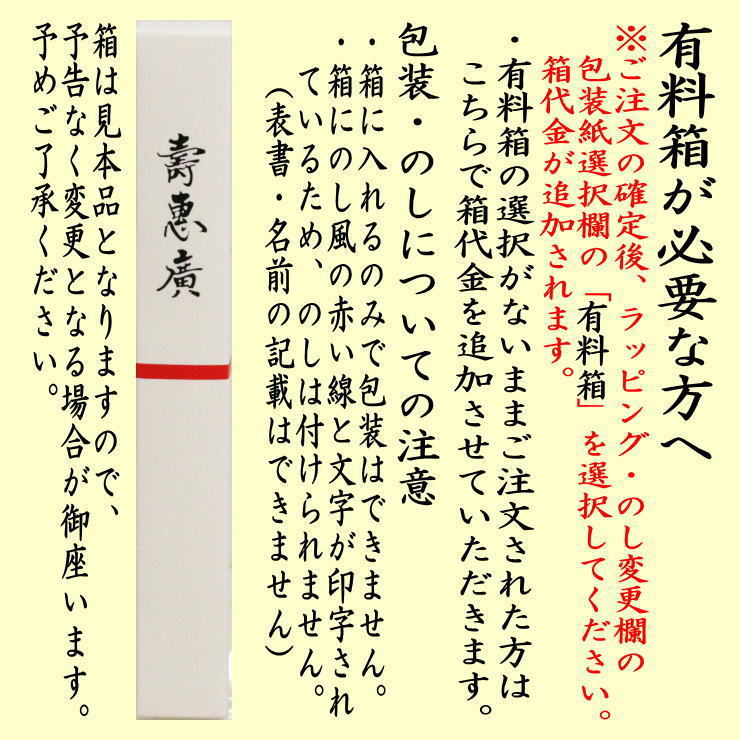 有料箱が必要な方へ
※ご注文の確定後、ラッピング・のし変更欄の
包装紙選択欄の「有料箱」を選択してください。
箱代金が追加されます。
・有料箱の選択がないままご注文された方は
こちらで箱代金を追加させていただきます。
包装・のしについての注意
・箱に入れるのみで包装はできません。
・箱にのし風の赤い線と文字が印字され
ているため、のしは付けられません。
(表書・名前の記載はできません)
壽惠廣
箱は見本品となりますので、
予告なく変更となる場合が御座います。
予めご了承ください。